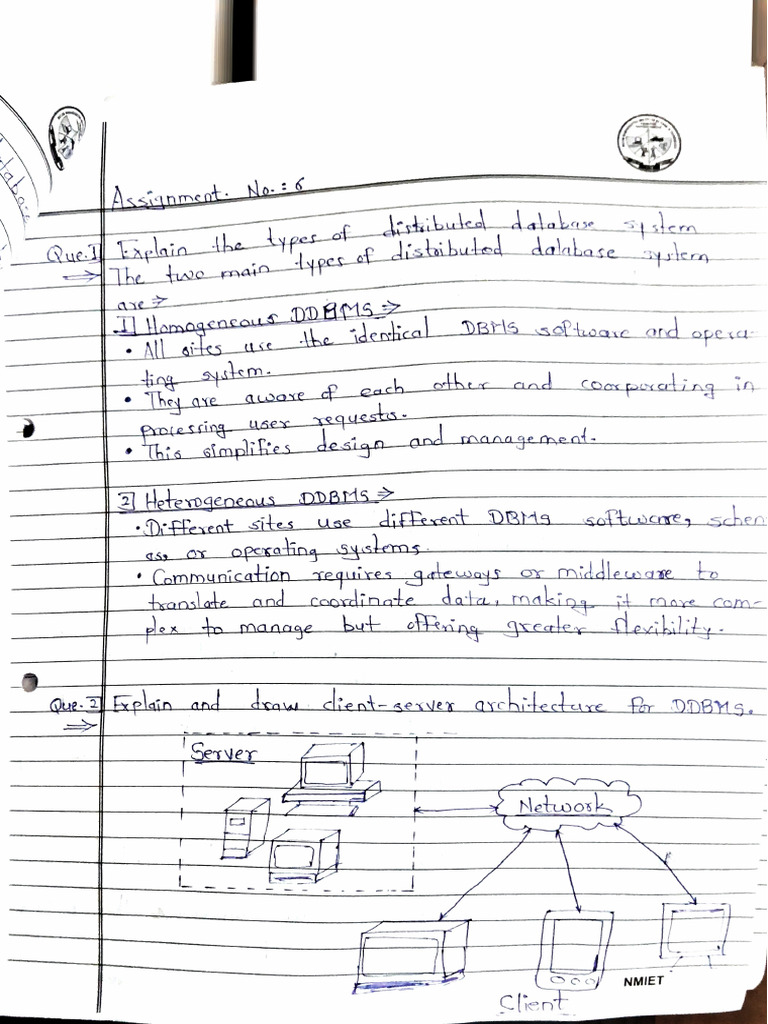 Assignment. No.: 6
Que.1] Explain the types of distributed database system
⇒ The two main types of distributed database system
are ⇒
1] Homogeneous DDBMS ⇒
• All sites use the identical DBMS software and opera-
ting system.
• They are aware of each other and coorporating in
processing user requests.
• This simplifies design and management.
2] Heterogeneous DDBMS ⇒
• Different sites use different DBMS software, schem
as, or operating systems.
• Communication requires gateways or middleware to
translate and coordinate data, making it more com-
plex to manage but offering greater flexibility.
Que. 2] Explain and draw client-server architecture for DDBMS.
⇒
Server
Network
NMIET
Client